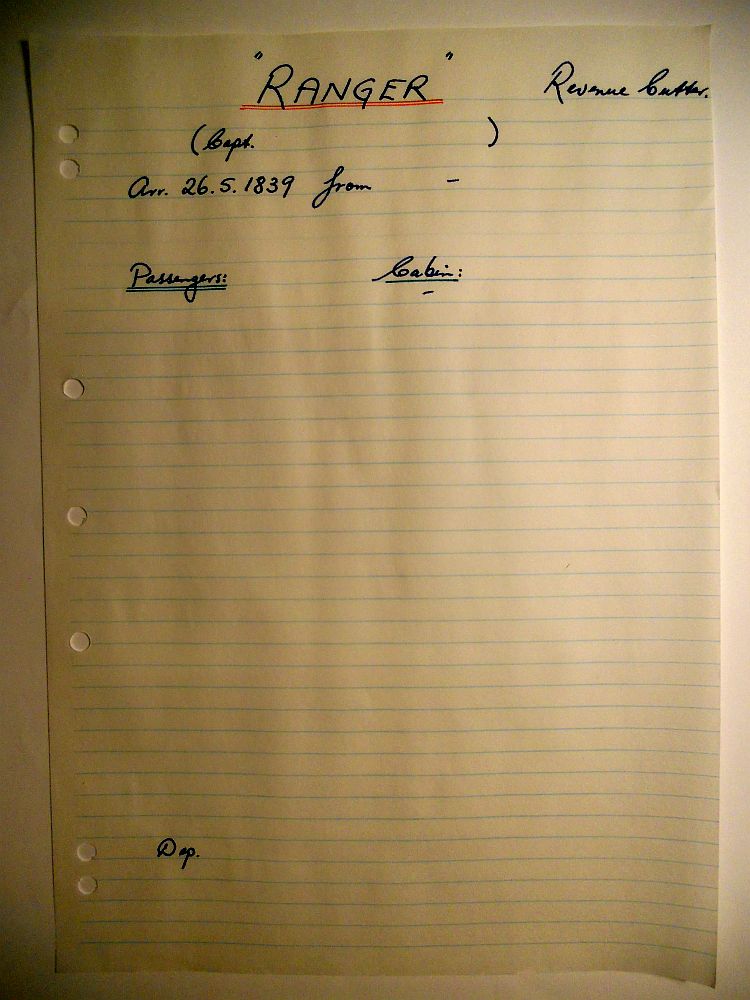 "RANGER" Revenue Cutter.
(Capt. )
Arr. 26.5.1839 from -
Passengers: Cabin:
-
Dep.